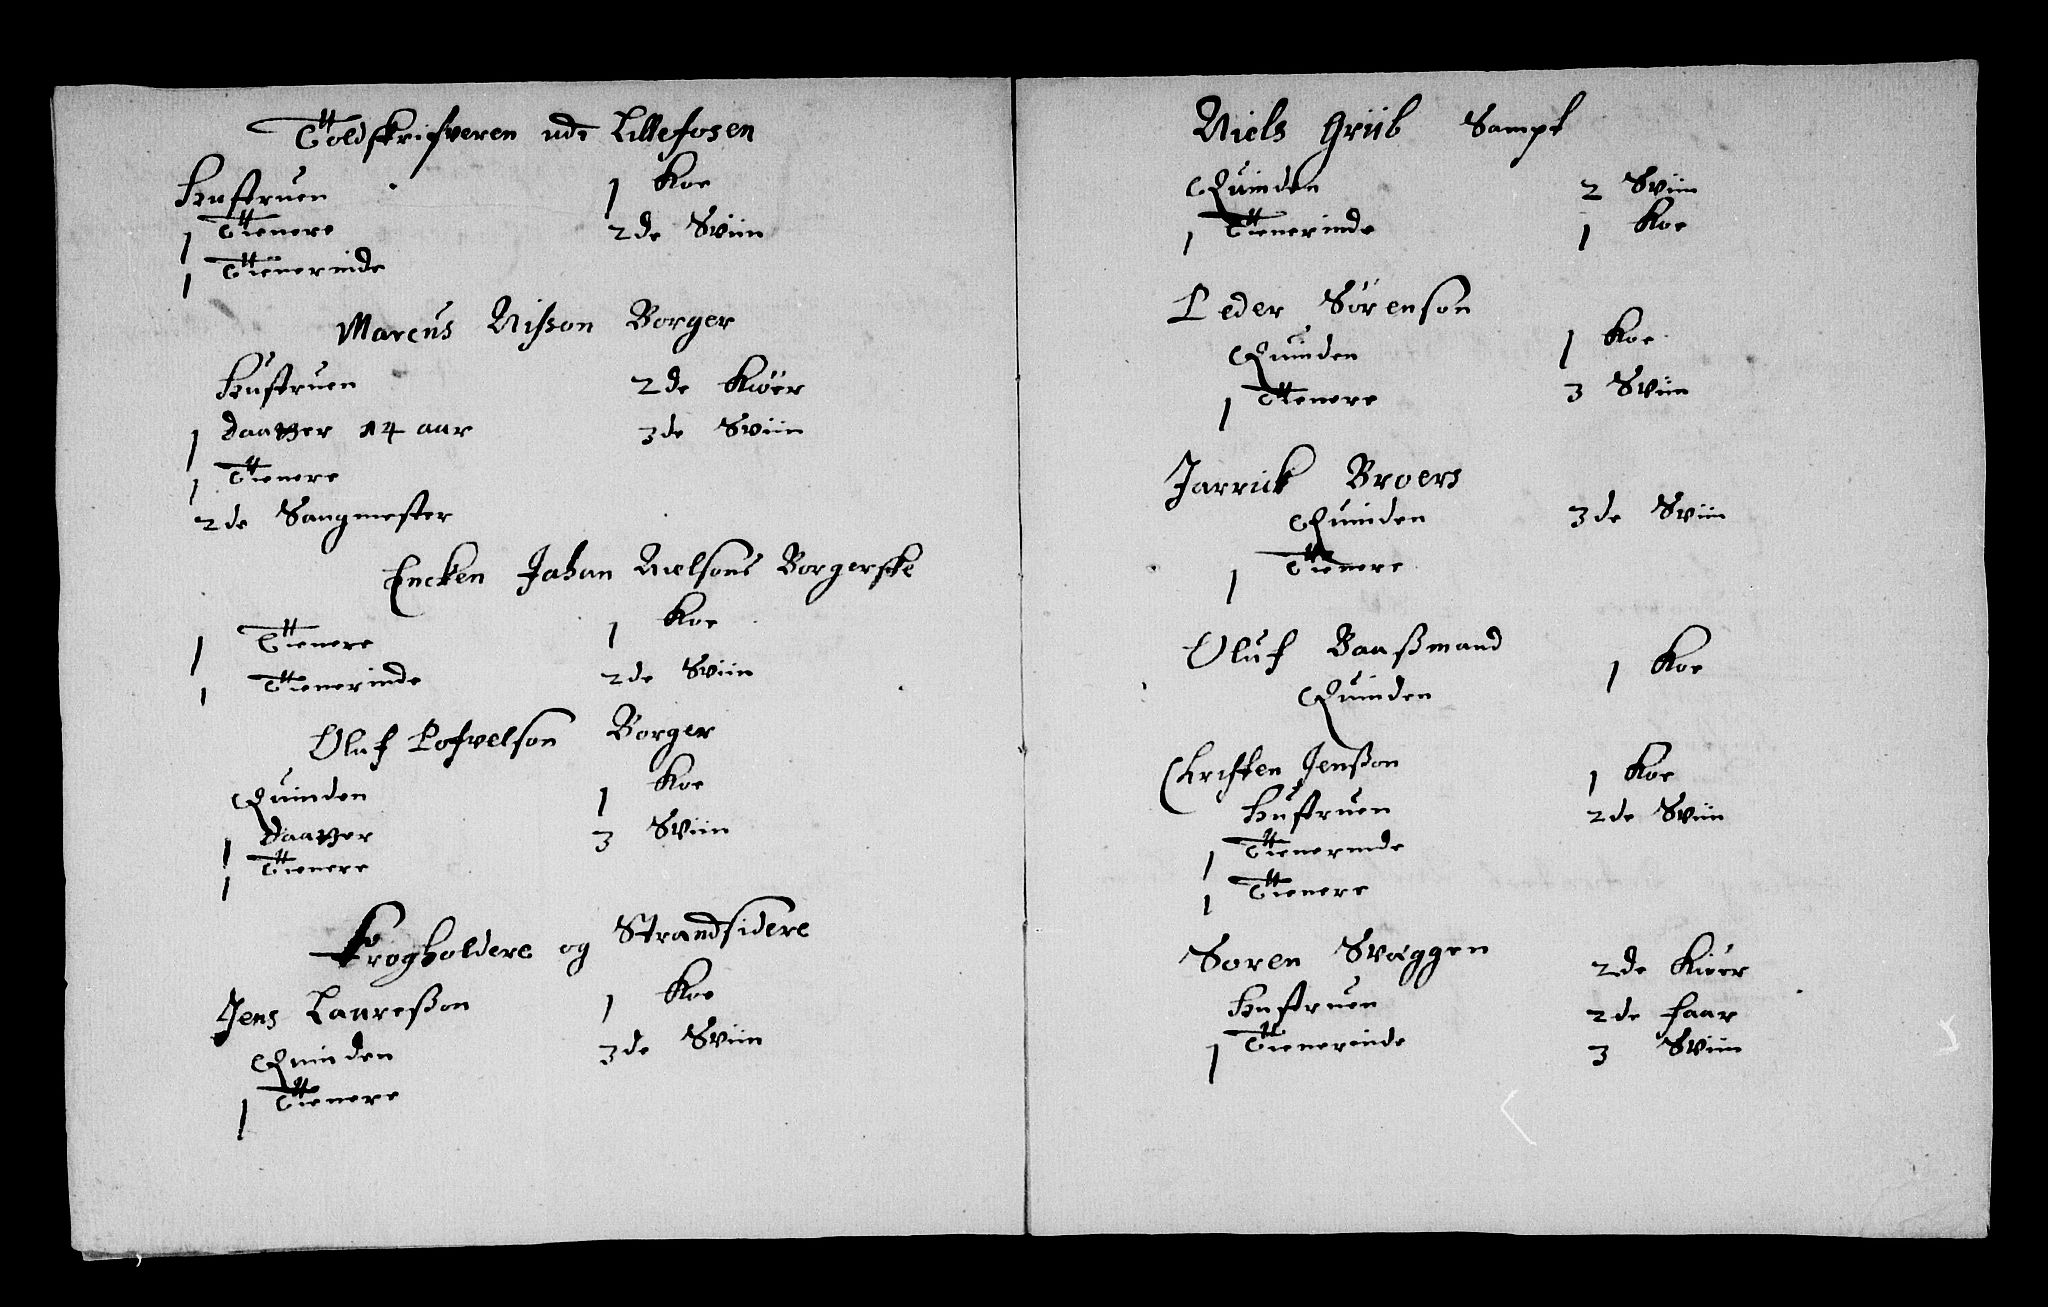 Toldskrifveren udi Lillefosen
Hustruen 1 Koe
1 Tienere 2de Sviin
1 Tienerinde
Marcus Nisson Borger
Hustruen 2de Kiöer
1 Daatter 14 aar 3de Sviin
1 Tienere
2de Sangmester
Encken Johan Nielsons Borgerske
1 Tienere 1 Koe
1 Tienerinde 2de Sviin
Oluf Pofvelson Borger
Quinden 1 Koe
1 Daatter 3 Sviin
1 Tienere
Krogholdere og Strandsidere
Jens Laureßon 1 Koe
Quinden 3de Sviin
1 Tienere
Niels Grüb Sampt
Quinden 2 Sviin
1 Tienerinde 1 Koe
Peder Sörenson
Quinden 1 Koe
1 Tienere 3 Sviin
Jarrick Broers
Quinden 3de Sviin
1 Tienere
Oluf Baaßmand 1 Koe
Quinden
Christen Jenßon 1 Koe
Hustruen 2de Sviin
1 Tienerinde
1 Tienere
Soren Svaggen 2de Kiöer
Hustruen 2de faar
1 Tienerinde 3 Sviin